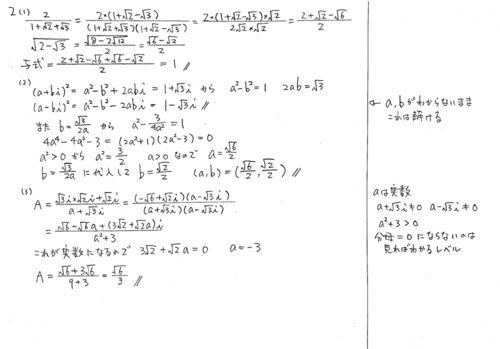 2 (1) 2/(1+√2+√3) = 2×(1+√2-√3)/((1+√2+√3)(1+√2-√3)) = 2×(1+√2-√3)×√2/(2√2×√2) = (2+√2-√6)/2
√(2-√3) = √(8-2√12)/2 = (√6-√2)/2
与式 = (2+√2-√6+√6-√2)/2 = 1 //
(2)
(a+bi)² = a²-b²+2abi = 1+√3i から a²-b²=1 2ab=√3
(a-bi)² = a²-b²-2abi = 1-√3i //
また b=√3/2a から a²-3/4a²=1
4a⁴-4a²-3=(2a²+1)(2a²-3)=0
a²>0から a²=3/2 a>0なので a=√6/2
b=√3/2aに代入して b=√2/2 (a,b)=(√6/2, √2/2) //
(3)
A = (√3i×√2i+√2i)/(a+√3i) = (-√6+√2i)(a-√3i)/((a+√3i)(a-√3i))
= (√6-√6a+(3√2+√2a)i)/(a²+3)
これが実数になるので 3√2+√2a=0 a=-3
A = (√6+3√6)/(9+3) = √6/3 //
← a,bがわからないまま
これは解ける
aは実数
a+√3i≠0 a-√3i≠0
a²+3>0
分母=0にならないのは
見ればわかるレベル